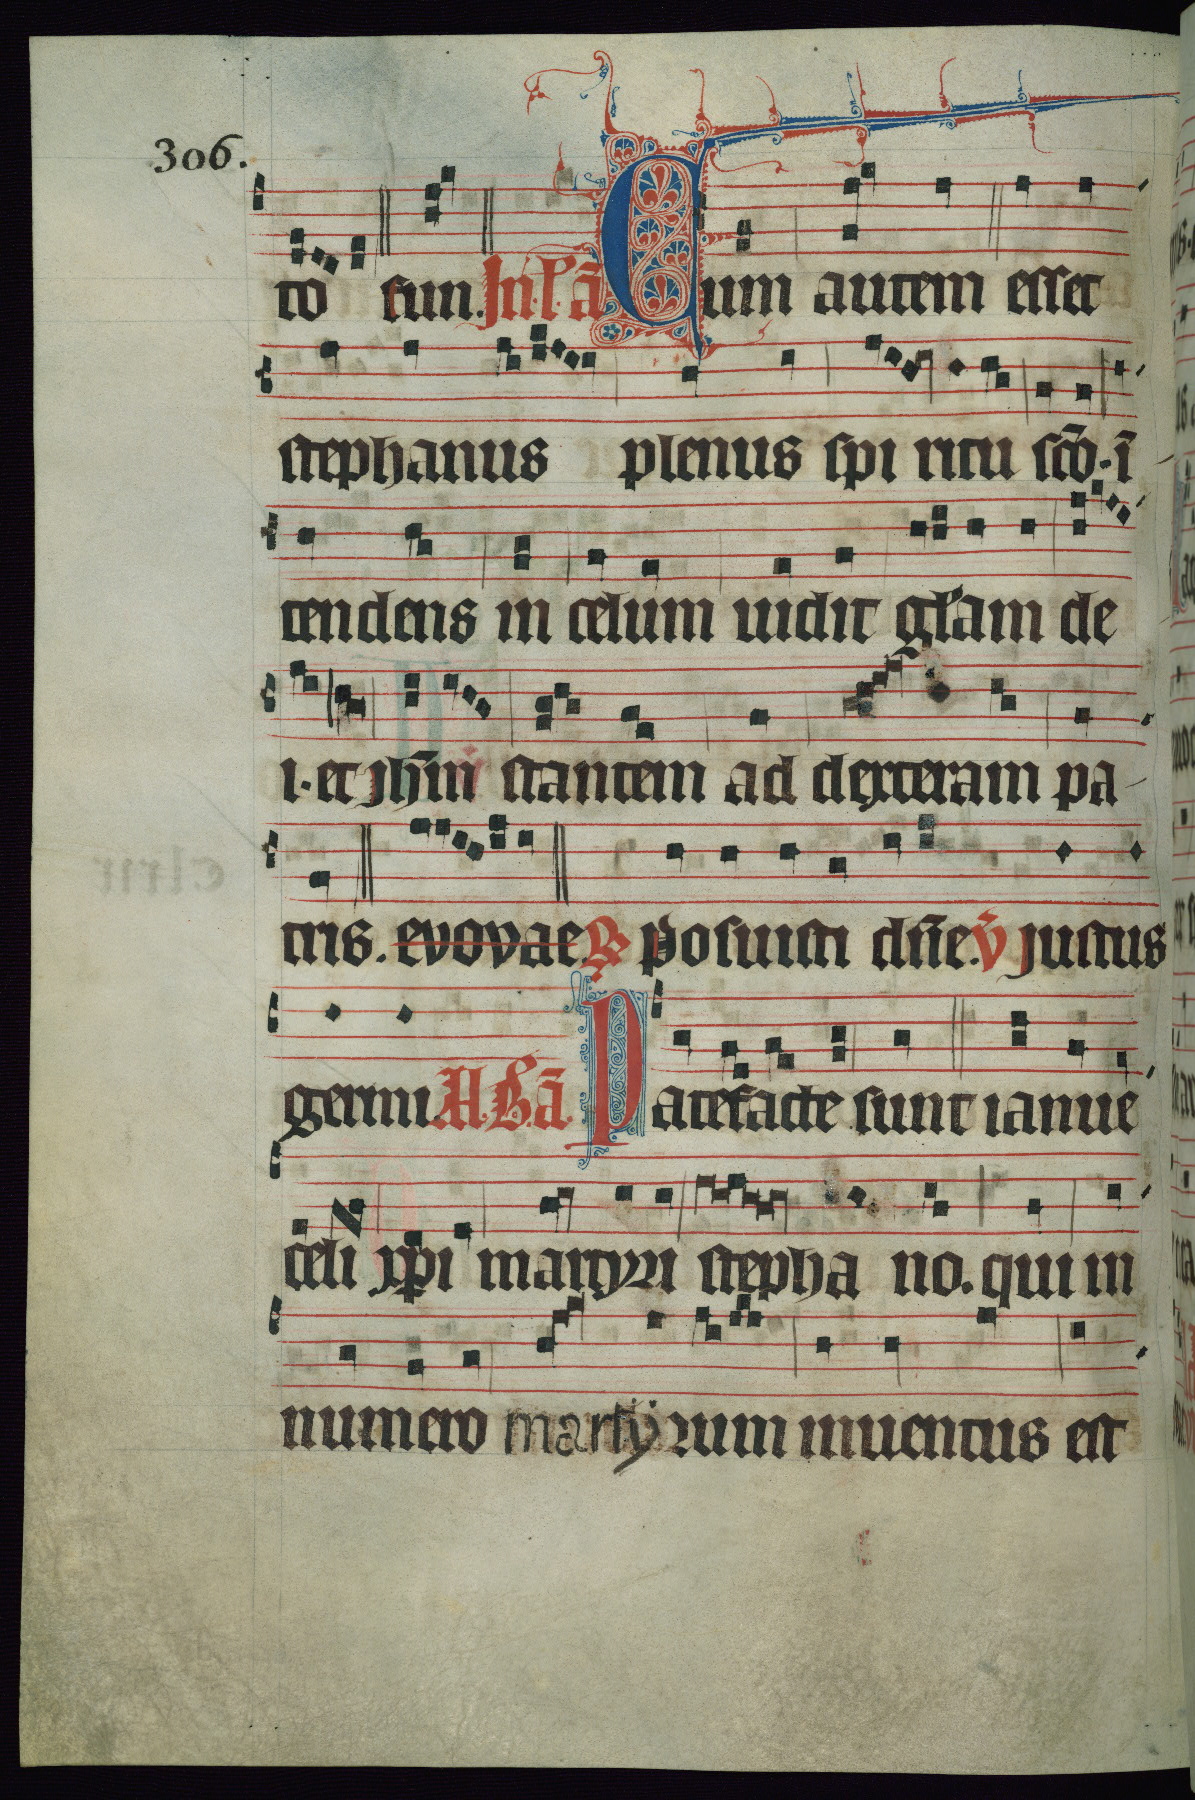 306.
to sun. In.l.a Cum autem esset
stephanus plenus spi ritu sc̄o. ī
tendens in celum uidit gl̄am de
i. et jhm̄ stantem ad dexteram pa
tris. evovae. ℟ posuisti dn̄e. v̄ justus
germi A. B. ā Patefacte sunt ianue
celi xp̄i martyri stepha no. qui in
numero martÿrum inuentus est